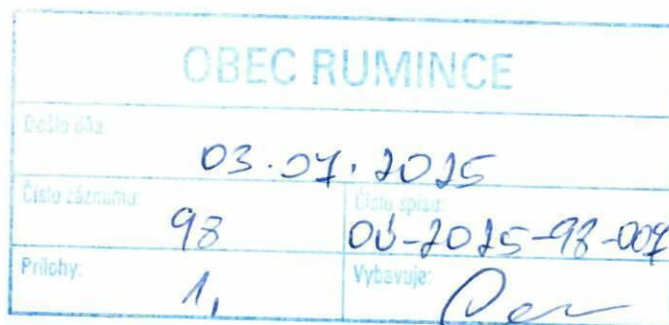 OBEC RUMINCE
Došlo dňa:
03.07.2025
Číslo záznamu: Číslo spisu:
98 OÚ-2025-98-007
Prílohy: Vybavuje:
1,